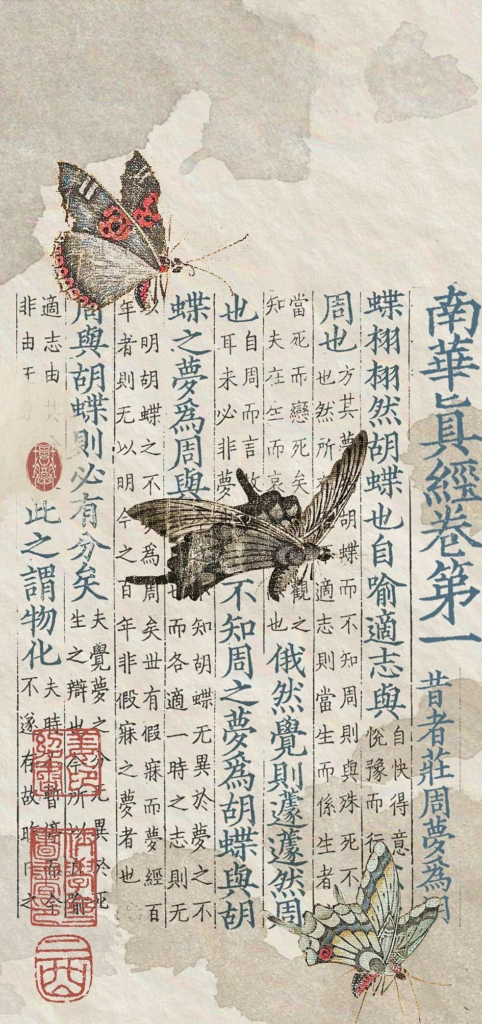 南華眞經卷第一
昔者莊周夢爲胡
蝶栩栩然胡蝶也自喻適志與
自快得意
恱豫而行
周也
方其夢胡蝶而不知周則與殊死不
也然所適志則當生而係生者
當死而戀死矣觀之
知夫在生而哀也
俄然覺則蘧蘧然周
也
自周而言故
耳未必非夢
不知周之夢爲胡蝶與胡
蝶之夢爲周與
知胡蝶无異於夢之不
而各適一時之志則无
以明胡蝶之不為周矣世有假寐而夢經百
年者則无以明今之百年非假寐之夢者也
周與胡蝶則必有分矣
夫覺夢之分无異於死
生之辯也今所以喻
適志由其
非由无
此之謂物化
夫時不暫停而今
不遂存故昨日之